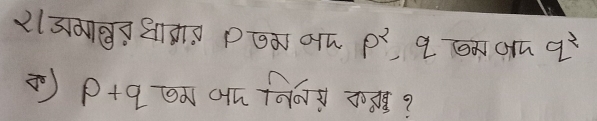 ২। সমান্তর ধারার p তম পদ p², q তম পদ q²
ক) p+q তম পদ নির্নয় করুন ?